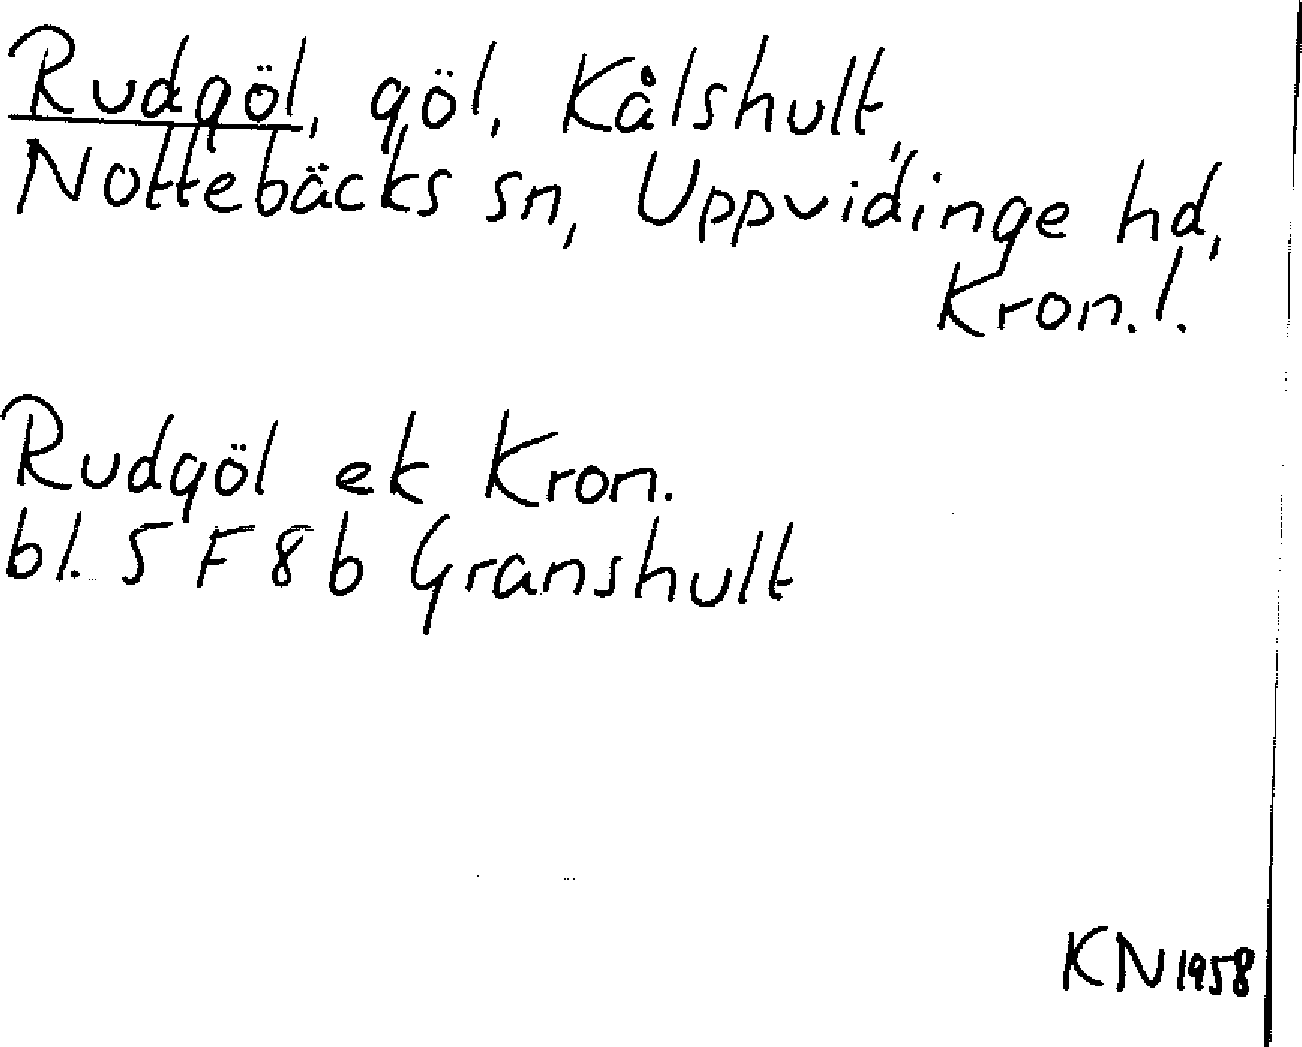 Rudgöl, göl, Kålshult,
Nottebäcks sn, Uppvidinge hd,
Kron.l.
Rudgöl ek Kron.
bl. 5 F 8 b Granshult
KN 1958